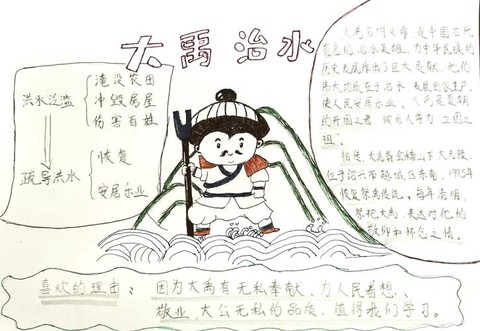 大禹治水
洪水泛滥
淹没农田
冲毁房屋
伤害百姓
疏导洪水
恢复
安居乐业
大禹名叫文命,是中国古代
有名的治水英雄,为中华民族的
历史发展作出了巨大贡献,他的
伟大功绩在于治水,发展农业生产,
使人民安居乐业。大禹是夏朝
的开国之君,被后人尊为"立国之
祖"。
相传,大禹葬会稽山下大禹陵,
位于绍兴市越城区东南,1995年
恢复祭禹传统。每年清明,
祭祀大禹,表达对他的
敬仰和怀念之情。
喜欢的理由:因为大禹有无私奉献、为人民着想、
敬业、大公无私的品质,值得我们学习。